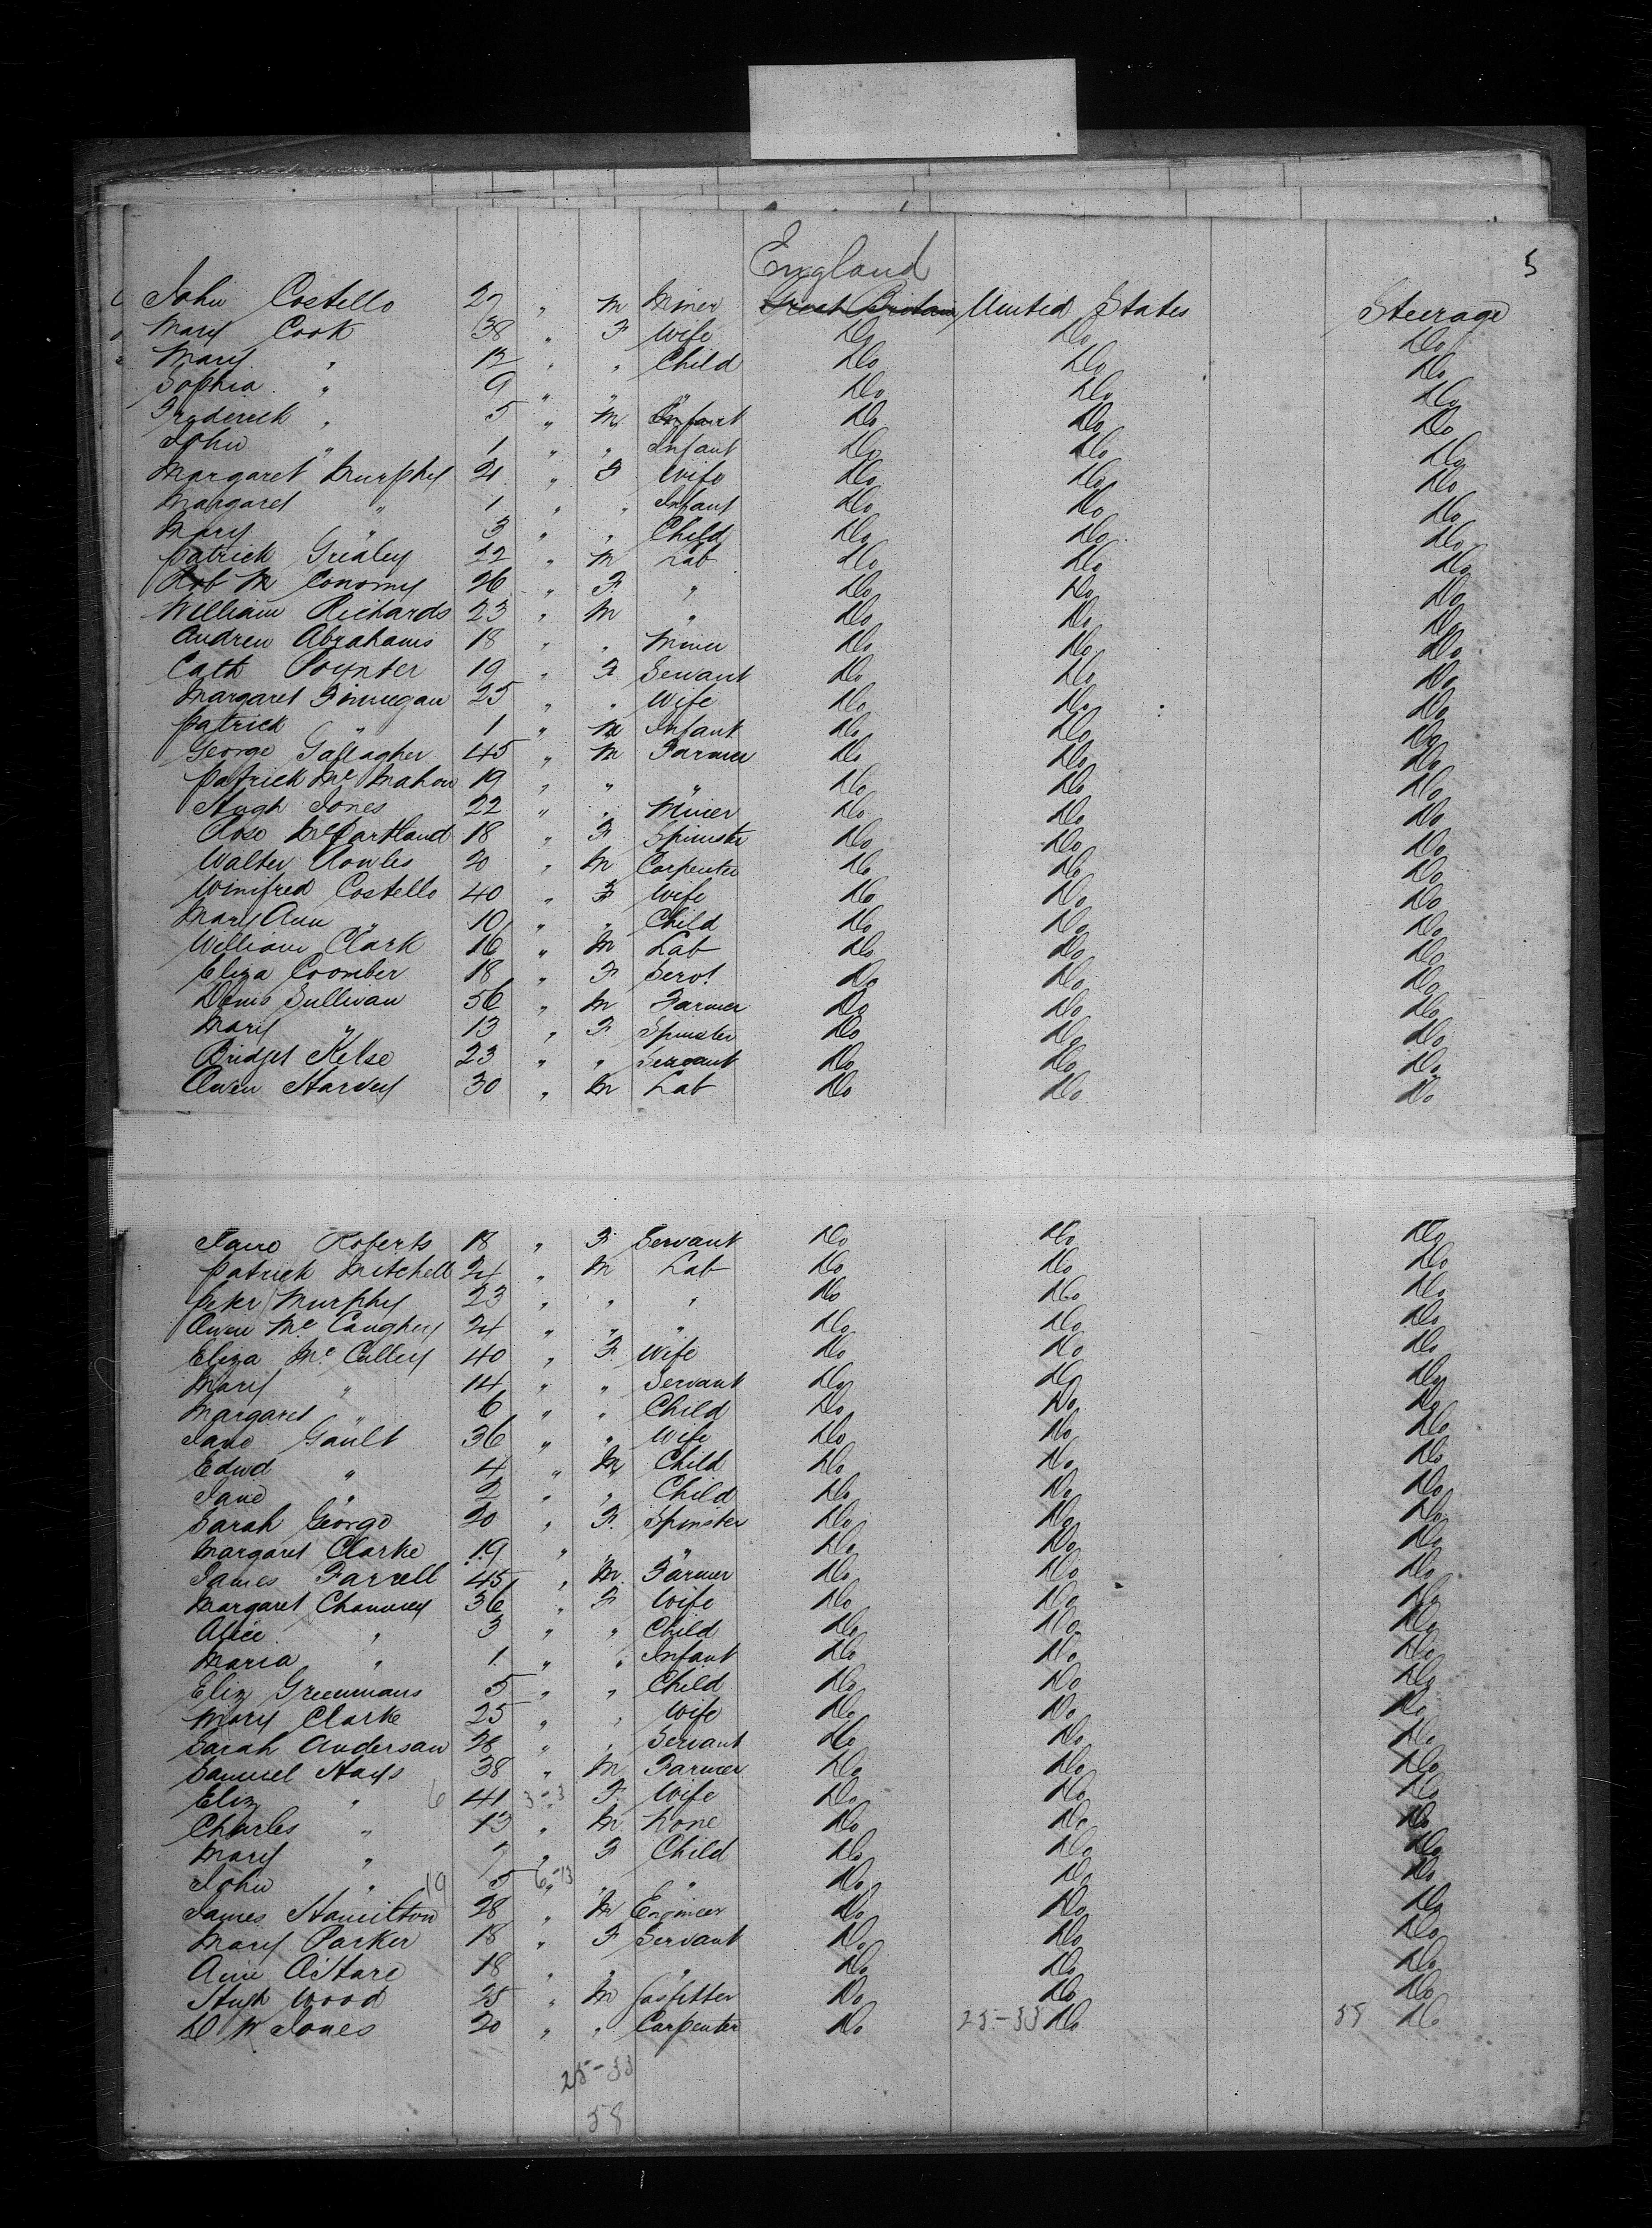 England
5
John Costello 27 " M Miner Great Britain United States Steerage
Mary Cook 38 " F Wife Do Do Do
Mary " 12 " " Child Do Do Do
Sophia " 9 " " " Do Do Do
Frederick " 5 " M Infant Do Do Do
John " 1 " " Infant Do Do Do
Margaret Murphy 21 " F Wife Do Do Do
Margaret " 1 " " Infant Do Do Do
Mary " 3 " " Child Do Do Do
Patrick Grealey 22 " M Lab Do Do Do
Rob M Conomy 26 " F " Do Do Do
William Richards 23 " M " Do Do Do
Andrew Abrahams 18 " " Miner Do Do Do
Cath Poynter 19 " F Servant Do Do Do
Margaret Finnegan 25 " " Wife Do Do Do
Patrick " 1 " M Infant Do Do Do
George Gallagher 45 " M Farmer Do Do Do
Patrick Mc Mahon 19 " " " Do Do Do
Hugh Jones 22 " " Miner Do Do Do
Rose McPartland 18 " F Spinster Do Do Do
Walter Rowles 20 " M Carpenter Do Do Do
Winifred Costello 40 " F Wife Do Do Do
Mary Ann " 10 " " Child Do Do Do
William Clark 16 " M Lab Do Do Do
Eliza Coomber 18 " F Servt Do Do Do
Denis Sullivan 56 " M Farmer Do Do Do
Mary " 13 " F Spinster Do Do Do
Bridget Kelso 23 " " Servant Do Do Do
Owen Harvey 30 " M Lab Do Do Do
Jane Roberts 18 " F Servant Do Do Do
Patrick Mitchell 24 " M Lab Do Do Do
Peter Murphy 23 " " " Do Do Do
Owen Mc Caughey 24 " " " Do Do Do
Eliza Mc Culley 40 " F Wife Do Do Do
Mary " 14 " " Servant Do Do Do
Margaret " 6 " " Child Do Do Do
Jane Gault 36 " " Wife Do Do Do
Edwd " 4 " M Child Do Do Do
Jane " 2 " " Child Do Do Do
Sarah George 20 " F Spinster Do Do Do
Margaret Clarke 19 " " " Do Do Do
James Farrell 45 " M Farmer Do Do Do
Margaret Chauncey 36 " F Wife Do Do Do
Alice " 3 " " Child Do Do Do
Maria " 1 " " Infant Do Do Do
Eliz Greenmans 5 " " Child Do Do Do
Mary Clarke 25 " " Wife Do Do Do
Sarah Anderson 28 " " Servant Do Do Do
Samuel Hays 38 " M Farmer Do Do Do
Eliz " 6 41 3-3 " F Wife Do Do Do
Charles " 13 " M None Do Do Do
Mary " 7 " F Child Do Do Do
John " 19 5 6-13 " " " Do Do Do
James Hamilton 28 " M Engineer Do Do Do
Mary Parker 18 " F Servant Do Do Do
Ann O'Hare 18 " " " Do Do Do
Hugh Wood 25 " M Gasfitter Do Do Do
D W Jones 20 " " Carpenter Do 25-33 Do Do
25-33
58